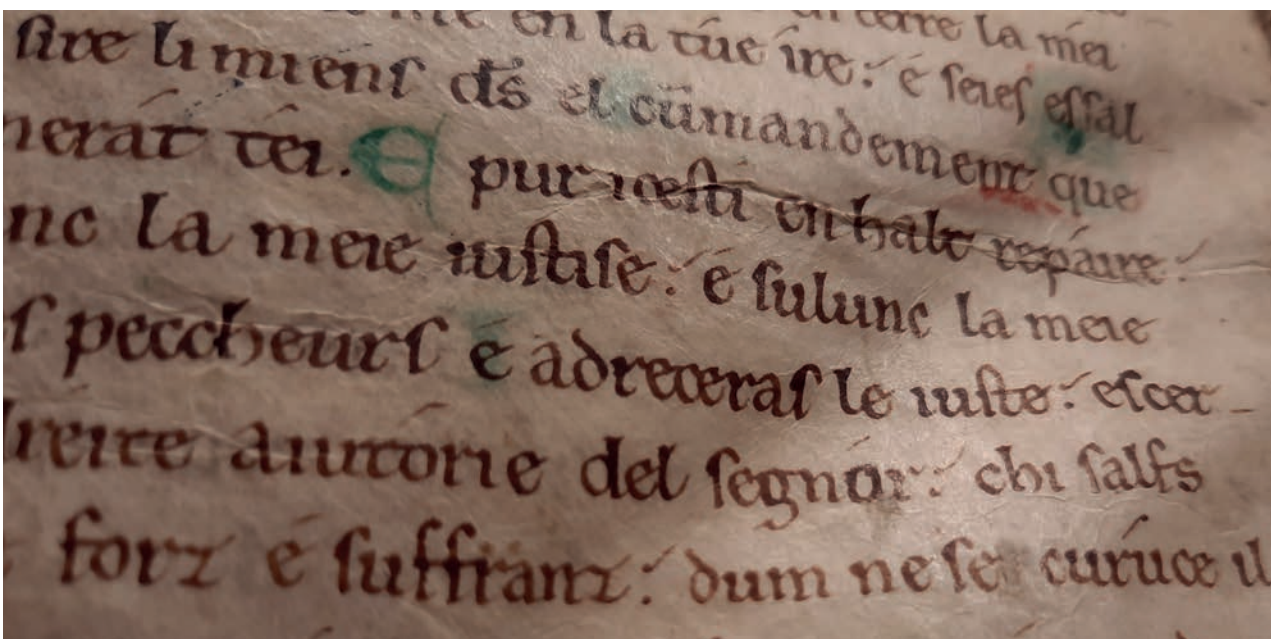 terre la mei
en la túe ire: é seies essal
sire li miens ds̄ el cūmandement que
nerát téi. E pur icesti en halt repáire:
nc la meie iustise: é sulunc la meie
s peccheurs é adreceras le iuste: escer-
reite aiutórie del segnór: chi salfs
forz é suffranz: dum ne se curuce il